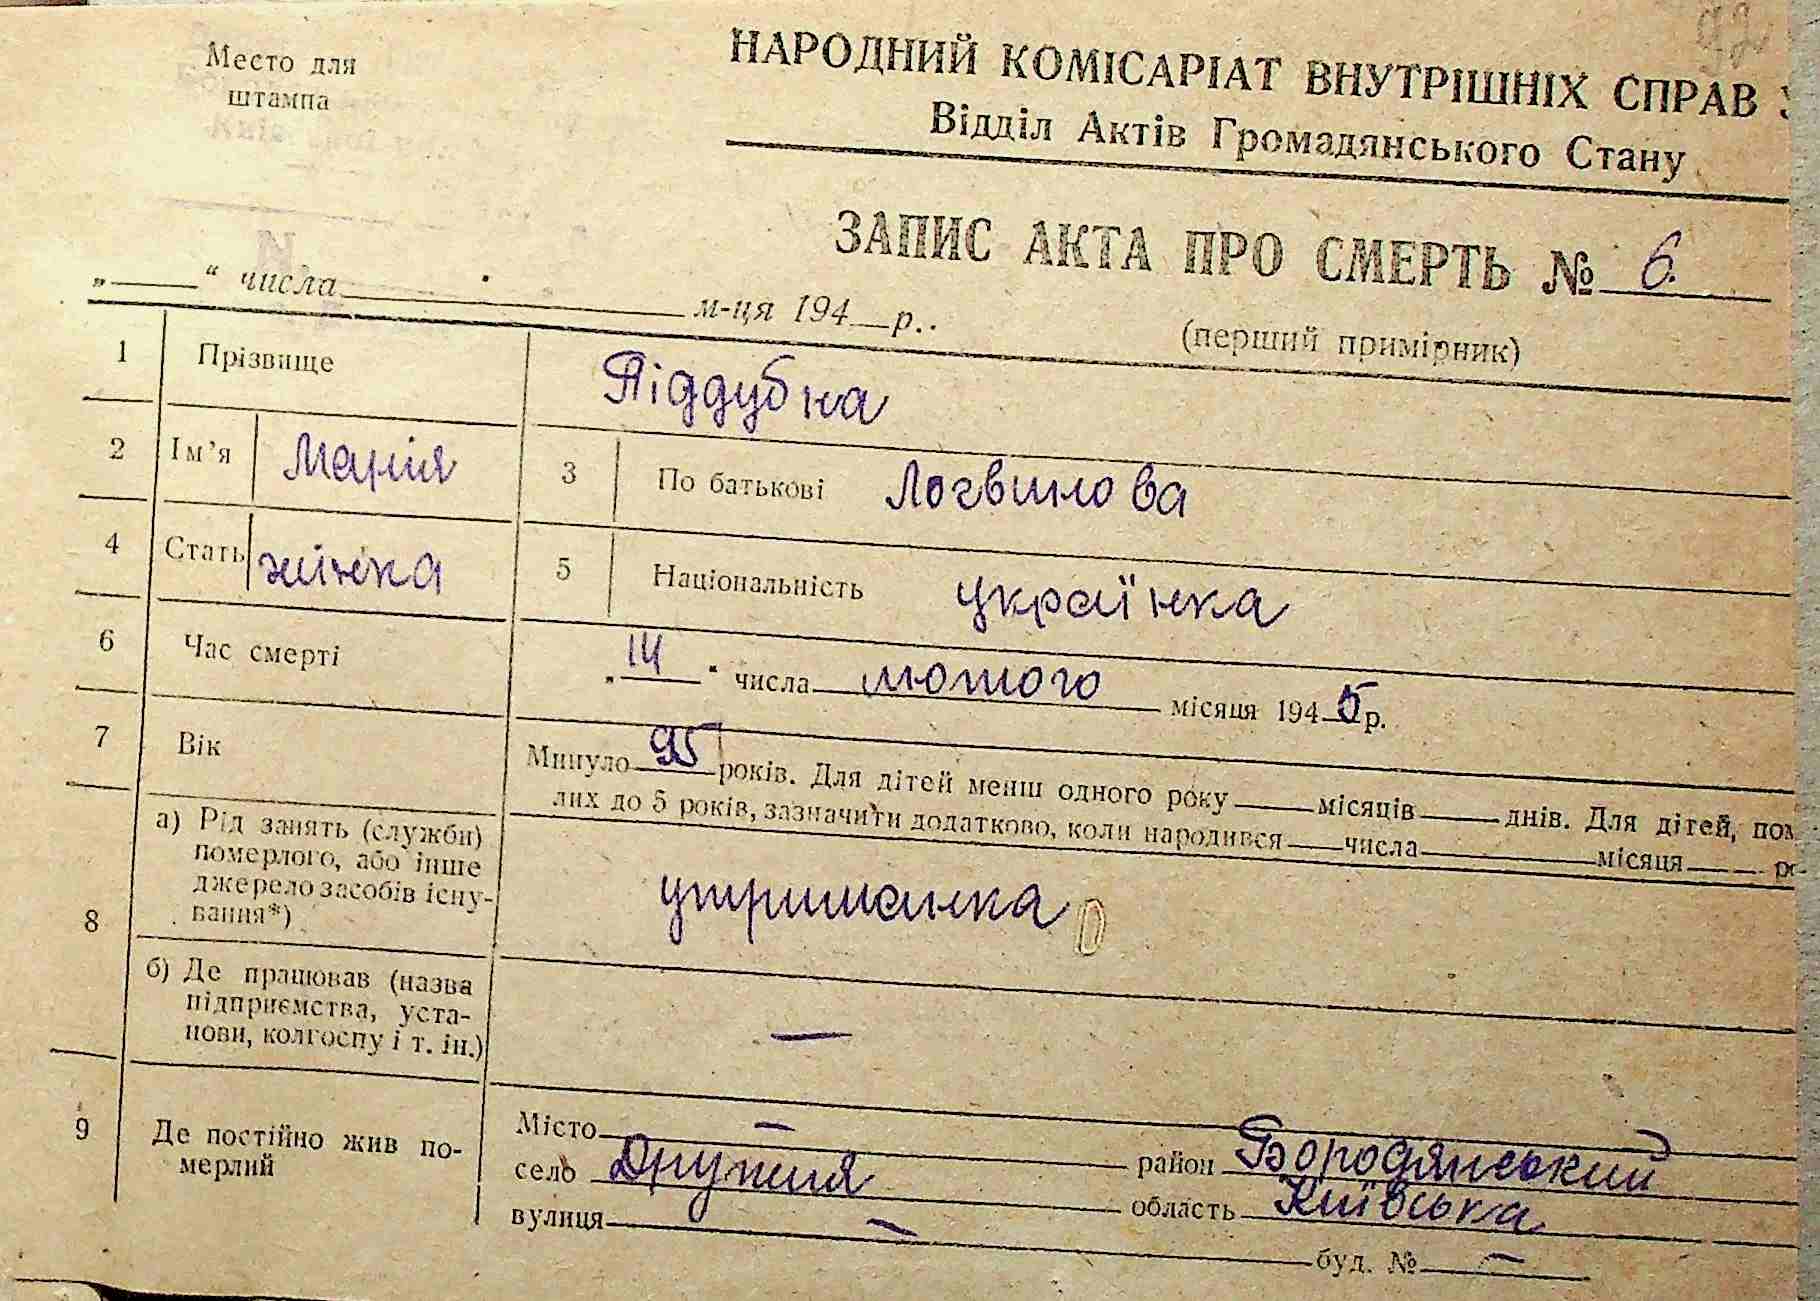 92
Место для
штампа
НАРОДНИЙ КОМІСАРІАТ ВНУТРІШНІХ СПРАВ
Відділ Актів Громадянського Стану
ЗАПИС АКТА ПРО СМЕРТЬ № 6.
„___“ числа___ м-ця 194__р..
(перший примірник)
1 Прізвище Піддубна
2 Ім’я Марія 3 По батькові Логвинова
4 Стать жінка 5 Національність українка
6 Час смерті „14“ числа лютого місяця 1945 р.
7 Вік Минуло 95 років. Для дітей менш одного року___місяців___днів. Для дітей, пом
лих до 5 років, зазначити додатково, коли народився___числа___місяця___
8 а) Рід занять (служби)
померлого, або інше
джерело засобів існу-
вання*)
утриманка
б) Де працював (назва
підприємства, уста-
нови, колгоспу і т. ін.)
—
9 Де постійно жив по-
мерлий
Місто —
село Дружня район Бородянський
область Київська
вулиця — буд. № —